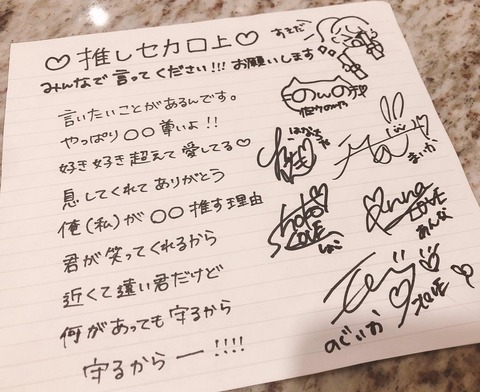 ♡推しセカ口上♡
みんなで言ってください!!! お願いします
言いたいことがあるんです。
やっぱり〇〇尊いよ!!
好き好き超えて愛してる♡
息してくれてありがとう
俺(私)が〇〇推す理由
君が笑ってくれるから
近くて遠い君だけど
何があっても守るから
守るからー!!!!
はなちゃ
まいか
anna
LOVE
あんな
LOVE
のじいか
LOVE